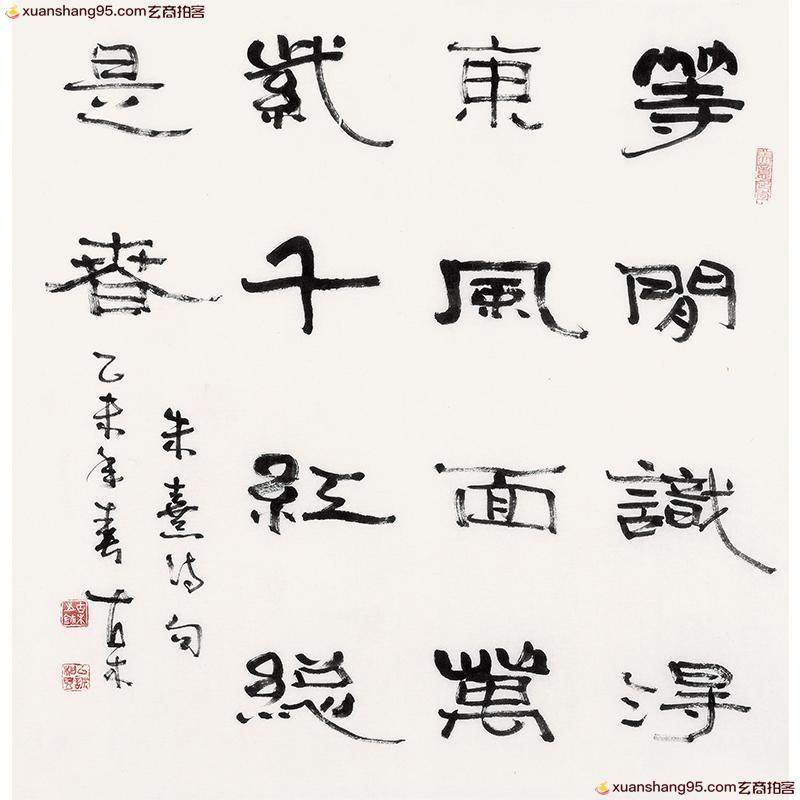 xuanshang95.com玄商拍客
等閒識得
東風面萬
紫千紅總
是春
朱熹詩句
乙未年春 古木
xuanshang95.com玄商拍客